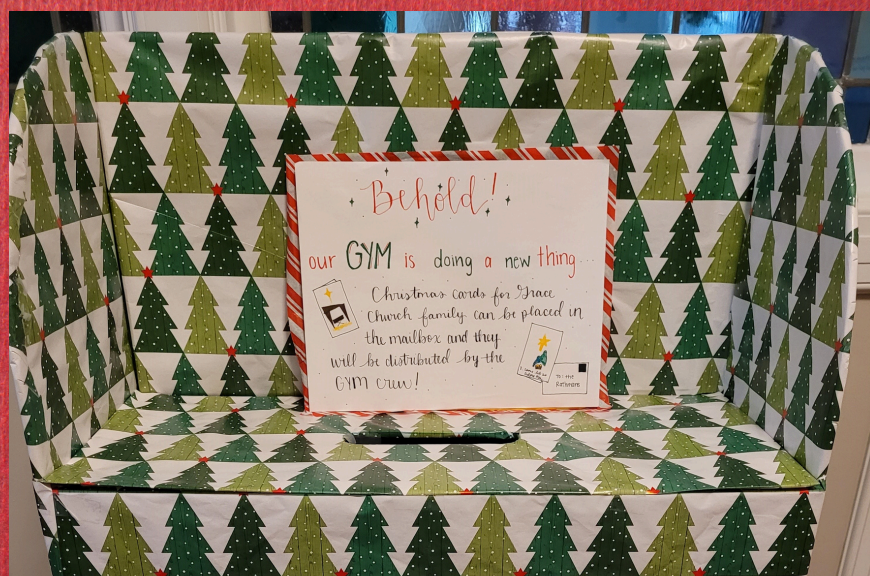 Behold!
our GYM is doing a new thing
Christmas cards for Grace
Church family can be placed in
the mailbox and they
will be distributed by the
GYM crew!
to: the